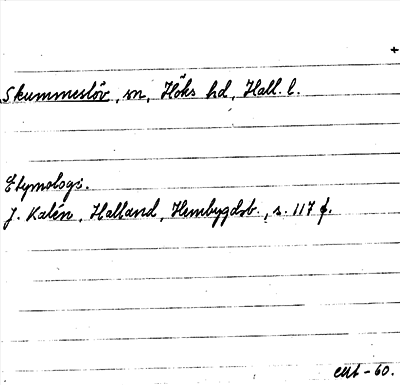 +
Skummeslöv, sn, Höks hd, Hall. l.
Etymologi.
J. Kalén, Halland, Hembygdsb., s. 117 f.
-60.